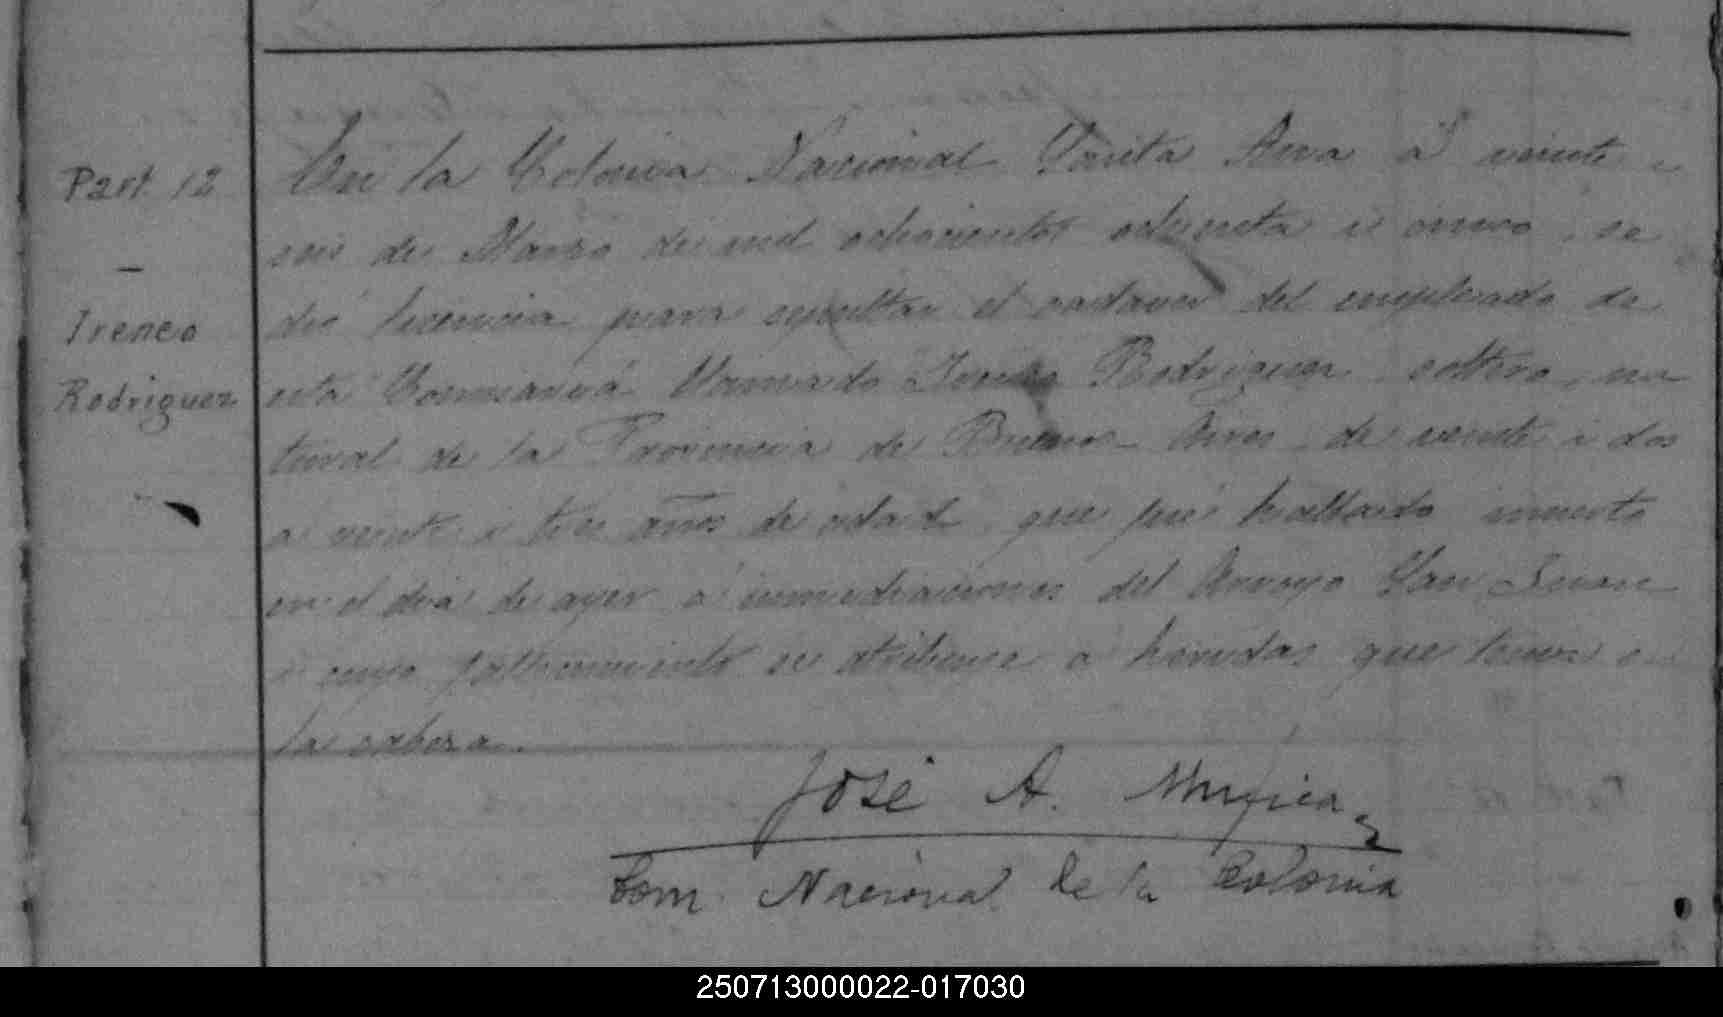 Part. 12
—
Ireneo
Rodriguez
En la Colonia Nacional Santa Ana á veinte i
seis de Marzo de mil ochocientos ochenta i cinco, se
dió licencia para sepultar el cadaver del empleado de
esta Comisaría llamado Ireneo Rodriguez soltero, na
tural de la Provincia de Buenos Aires, de veinte i dos
a veinte i tres años de edad, que fué hallado muerto
en el dia de ayer á inmediaciones del Arroyo San Juan
i cuyo fallecimiento se atribuye a heridas que tenia en
la cabeza.
José A. Mujica
Com. Nacional de la Colonia
250713000022-017030